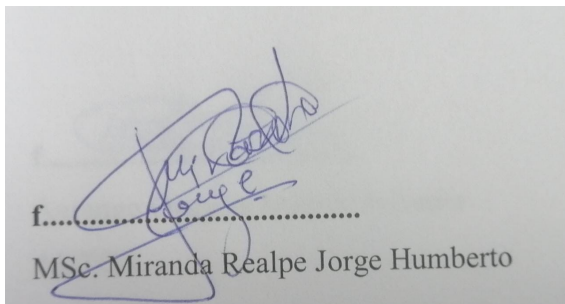 f................................................
MSc. Miranda Realpe Jorge Humberto